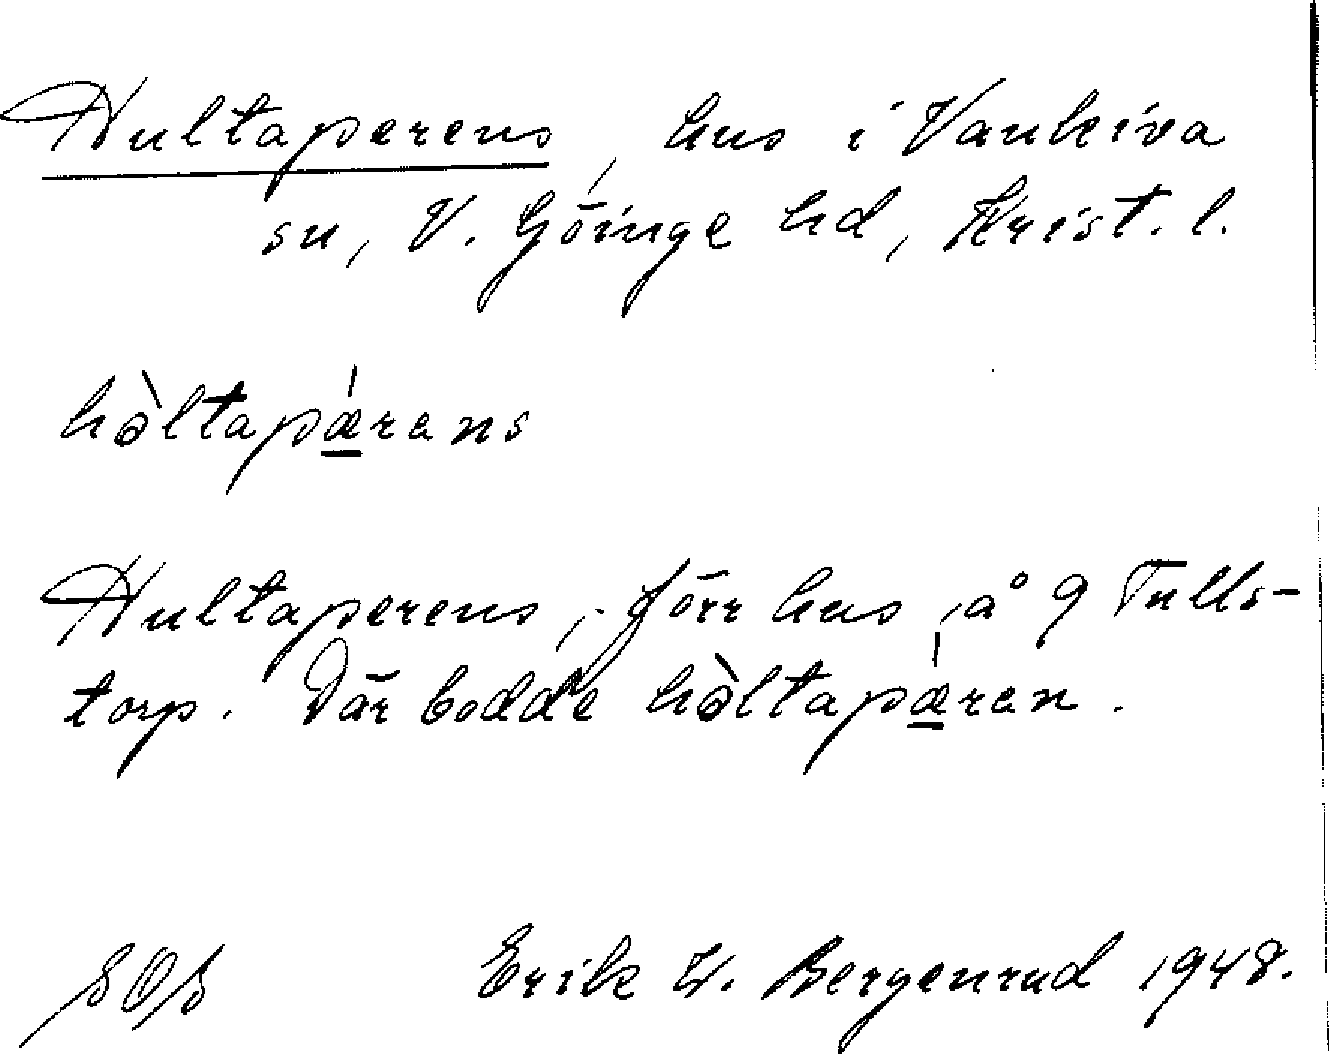 Hultaperens, hus i Vankiva
sn, V. Göinge hd, Krist. l.
hòltapǽrans
Hultaperens, förr hus å 9 Tulls-
torp. Där bodde hòltapǽren.
SOS Erik W. Bergenrud 1948.